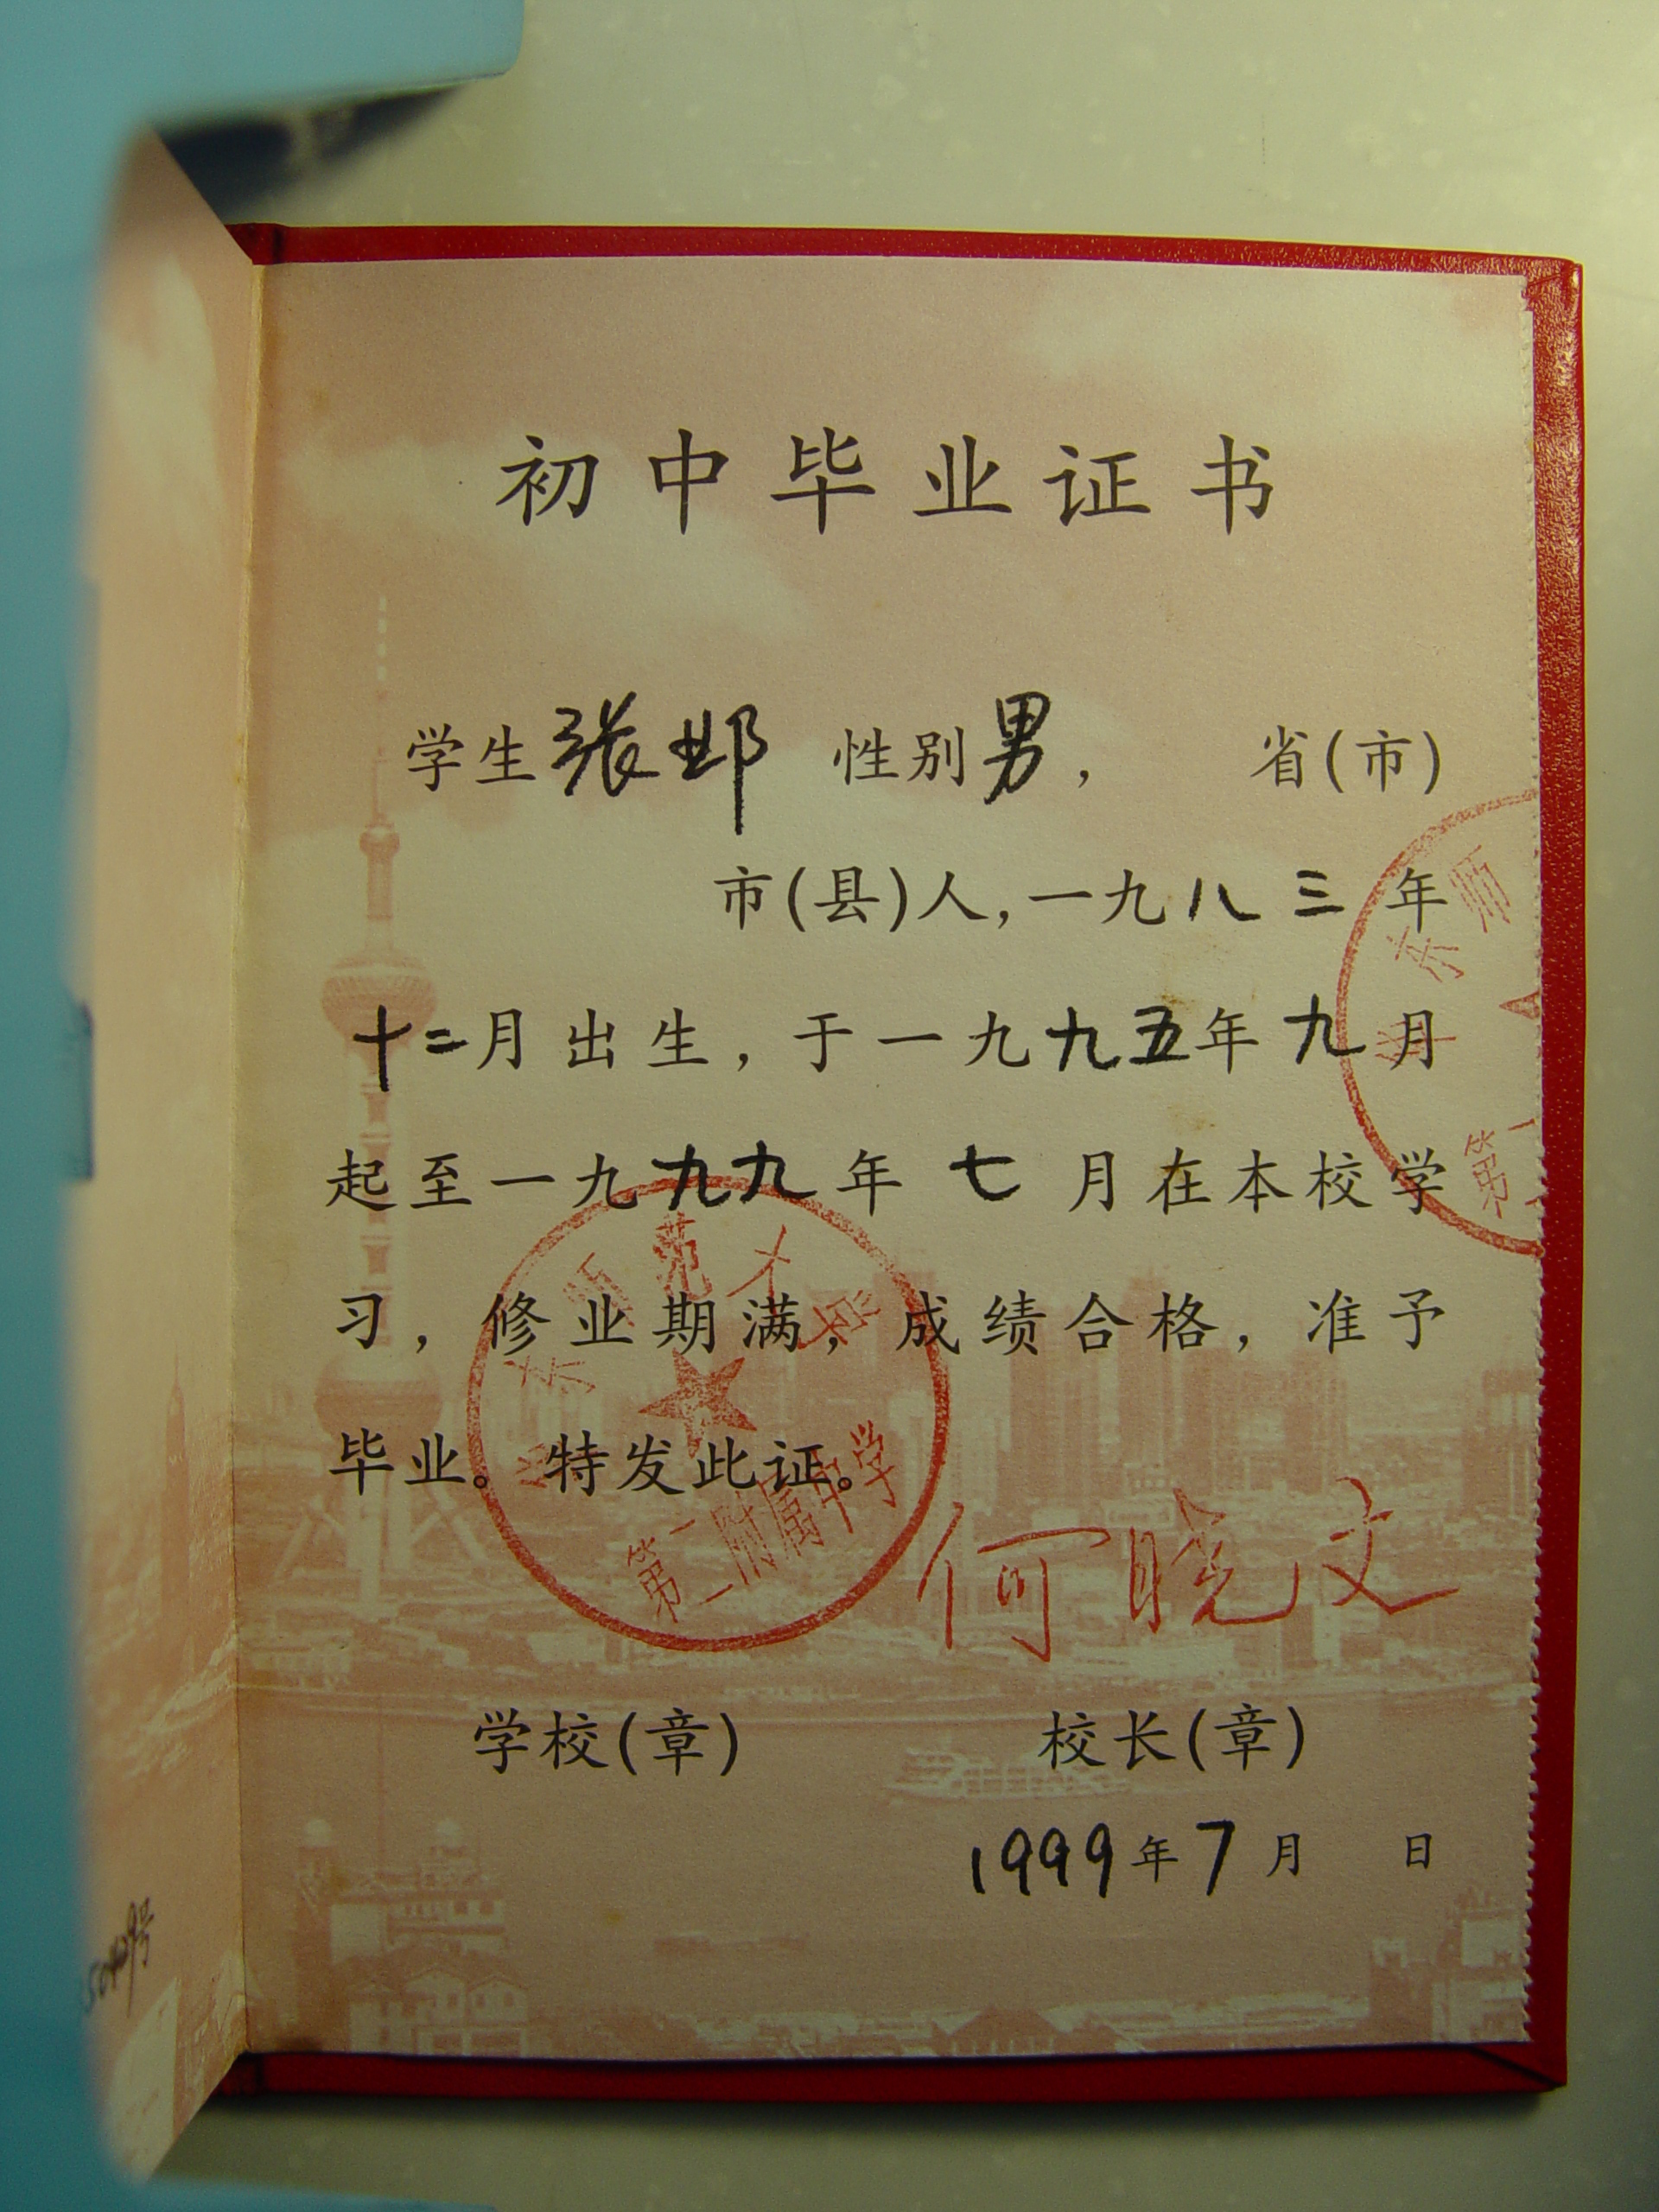 初中毕业证书
学生张邺 性别男, 省(市)
市(县)人,一九八三年
十二月出生,于一九九五年九月
起至一九九九年七月在本校学
习,修业期满,成绩合格,准予
毕业。特发此证。
华东师范大学
第二附属中学
何晓文
学校(章) 校长(章)
1999年7月 日
东师
第二
号